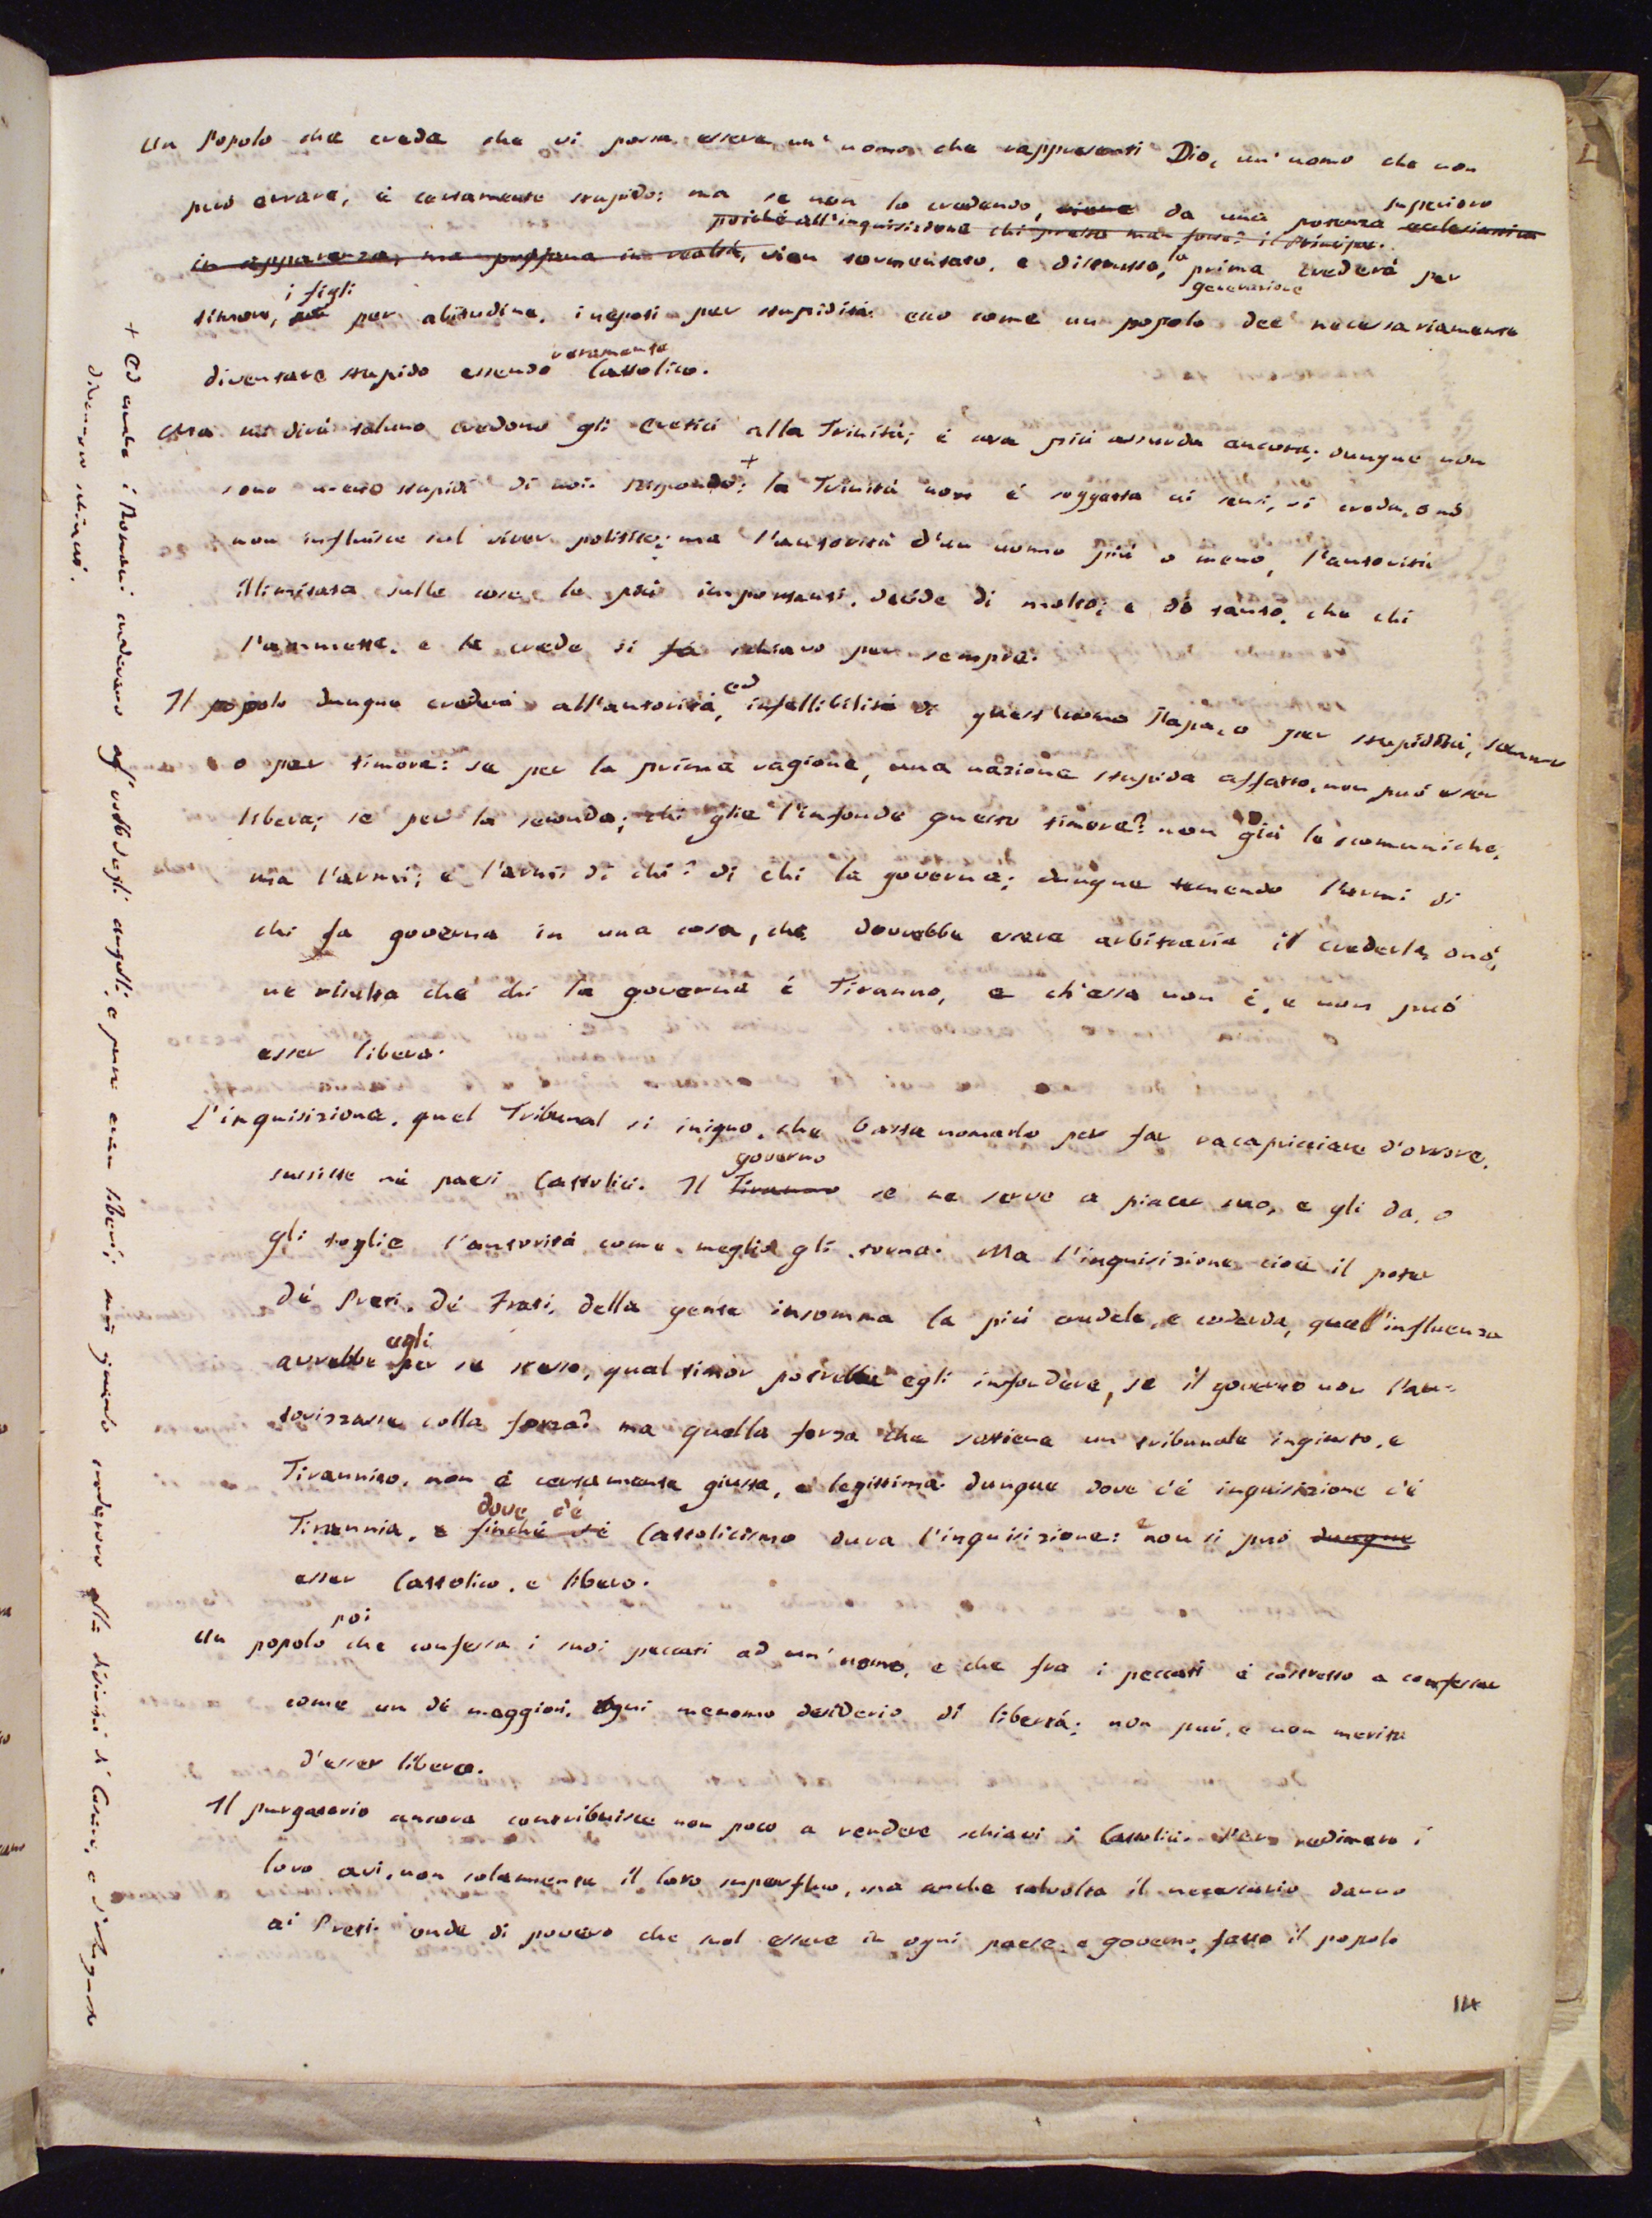 Un Popolo che creda che vi possa essere un' uomo che rappresenti Dio, un' uomo che non
può errare, è certamente stupido: ma se non lo credendo, viene da una potenza superiore ecclesiastica
poiché all'inquisizione chi presta man forte? il Principe.
in apparenza, ma profana in realtà, vien tormentato, e distrutto, la prima generazione crederà per
timore, i figli per abitudine, i neposi per stupidità: ecco come un popolo dee necessariamente
diventare stupido essendo veramente Cattolico.
Ma mi dirà taluno credono gli Eretici alla Trinità; è cosa più assurda ancora; dunque non
sono meno stupidi di noi: rispondo: + la Trinità non è soggetta ai sensi, si creda, o nò
non influisce sul viver politico; ma l'autorità d'un uomo più o meno, l'autorità
illimitata sulle cose le più importanti, decide di molto; e dò tanto, che chi
l'ammette, e la crede si fa schiavo per sempre.
Il popolo dunque crederà all'autorità, ed infallibilità di quest'uomo Papa, o per stupidità,
o per timore: se per la prima ragione, una nazione stupida affatto, non può esser
libera; se per la seconda; chi glie l'infonde questo timore? non già le scomuniche,
ma l'armi; e l'armi di chi? di chi la governa; dunque temendo l'armi di
chi la governa in una cosa, che dovrebbe essere arbitraria il crederla, o nò,
ne risulta che chi la governa è Tiranno, e ch'essa non è, e non può
esser libera.
L'inquisizione, quel Tribunal sì iniquo, che basta nomarlo per far racapricciare d'orrore,
sussiste nè paesi Cattolici. Il Tiranno governo se ne serve a piacer suo, e gli da, o
gli toglie l'autorità come meglio gli torna. Ma l'inquisizione cioè il poter
dè Preti, dè Frati, della gente insomma la più crudele, e codarda, quall'influenza
avrebbe egli per se stesso, qual timor potrebbe egli infondere, se il governo non l'au=
torizzasse colla forza? ma quella forza che sostiene un tribunale ingiusto, e
Tirannico, non è certamente giusta, e legittima: dunque dove c'è inquisizione c'è
Tirannia, e finché v'è dove c'è Cattolicismo dura l'inquisizione: e non si può dunque
esser Cattolico, e libero.
Un popolo poi che confessa i suoi peccati ad un' uomo, e che fra i peccati è costretto a confessar
come un dè maggiori, ogni menomo desiderio di libertà; non può, e non merita
d'esser libero.
Il purgatorio ancora contribuisce non poco a rendere schiavi i Cattolici. Per redimere i
loro avi, non solamente il loro superfluo, ma anche talvolta il necessario danno
ai Preti: onde di povero che suol essere in ogni paese, e governo, fatto il popolo
114
+ Ed anche i Romani credevano agl' veli degli augelli, e pure eran liberi; ma quando credettero alla divinità di Cesare, e d'Augusto
divennero schiavi.